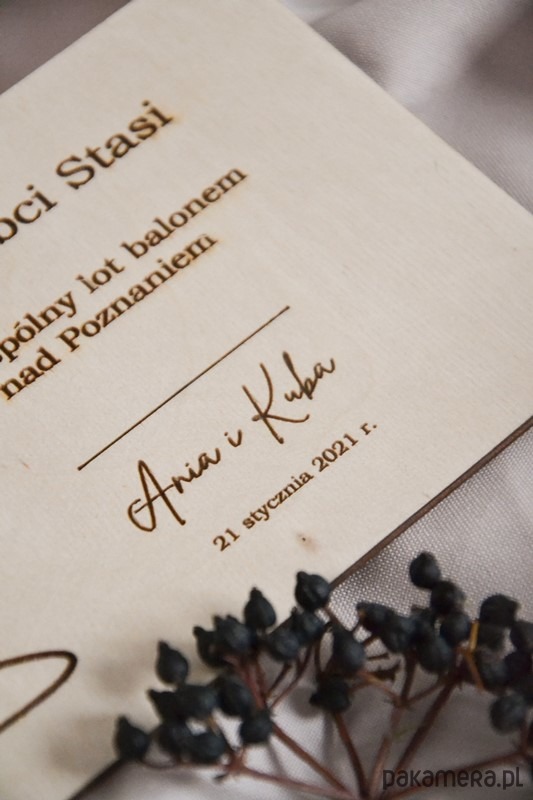 bci Stasi
pólny lot balonem
nad Poznaniem
Ania i Kuba
21 stycznia 2021 r.
pakamera.pl